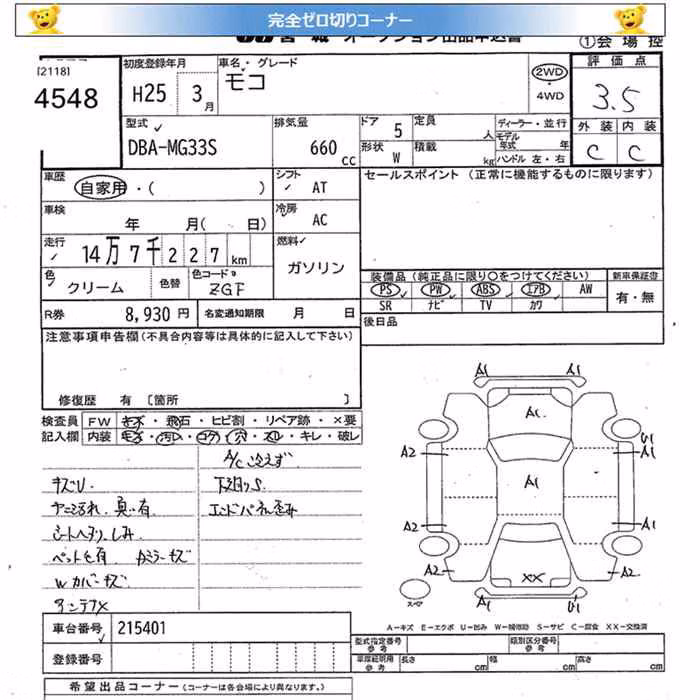 完全ゼロ切りコーナー
オークション出品申込書
①会場控
[2118]
4548
初度登録年月
H25 3月
車名・グレード
モコ
2WD・4WD
評価点
3.5
外装 内装
C C
型式
DBA-MG33S
排気量
660cc
ドア 5
形状 W
定員 人
積載 kg
ディーラー・並行
モデル年式 年
ハンドル 左・右
車歴
自家用・( )
シフト
AT
車検
年 月( 日)
冷房
AC
走行
14万7千227km
燃料
ガソリン
色
クリーム
色替
色コード
ZGF
R券 8,930円
名変通知期限 月 日
セールスポイント (正常に機能するものに限ります)
装備品 (純正品に限り○をつけてください)
新車保証書
PS PW ABS エアB AW
SR ナビ TV カワ
有・無
後日品
注意事項申告欄(不具合内容等は具体的に記入して下さい)
修復歴 有 〔箇所 〕
検査員記入欄
FW キズ・飛石・ヒビ割・リペア跡・×要
内装 キズ・汚レ・コゲ・穴・スレ・キレ・破レ
A/C冷えず
キズU
下廻りS
ヤニ汚れ 臭い有
エンドパネル歪み
シートへタリ、しみ
ペット毛有 Dミラーキズ
Wカバーキズ
アンテナX
A1 A1
A1
U1
A2 A1
A1
A2 A1
A2 A2
XX
A1 U1
スペア
A-キズ E-エクボ U-凹み W-補修跡 S-サビ C-腐食 XX-交換済
車台番号 215401
登録番号
型式指定番号 参考
類別区分番号 参考
車庫証明用 参考 長さ cm 幅 cm 高さ cm
希望出品コーナー (コーナーは各会場により異なります。)